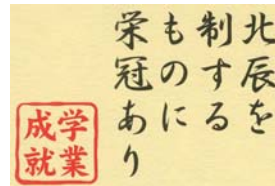 北辰を
制する
ものに
栄冠あり
学業
成就